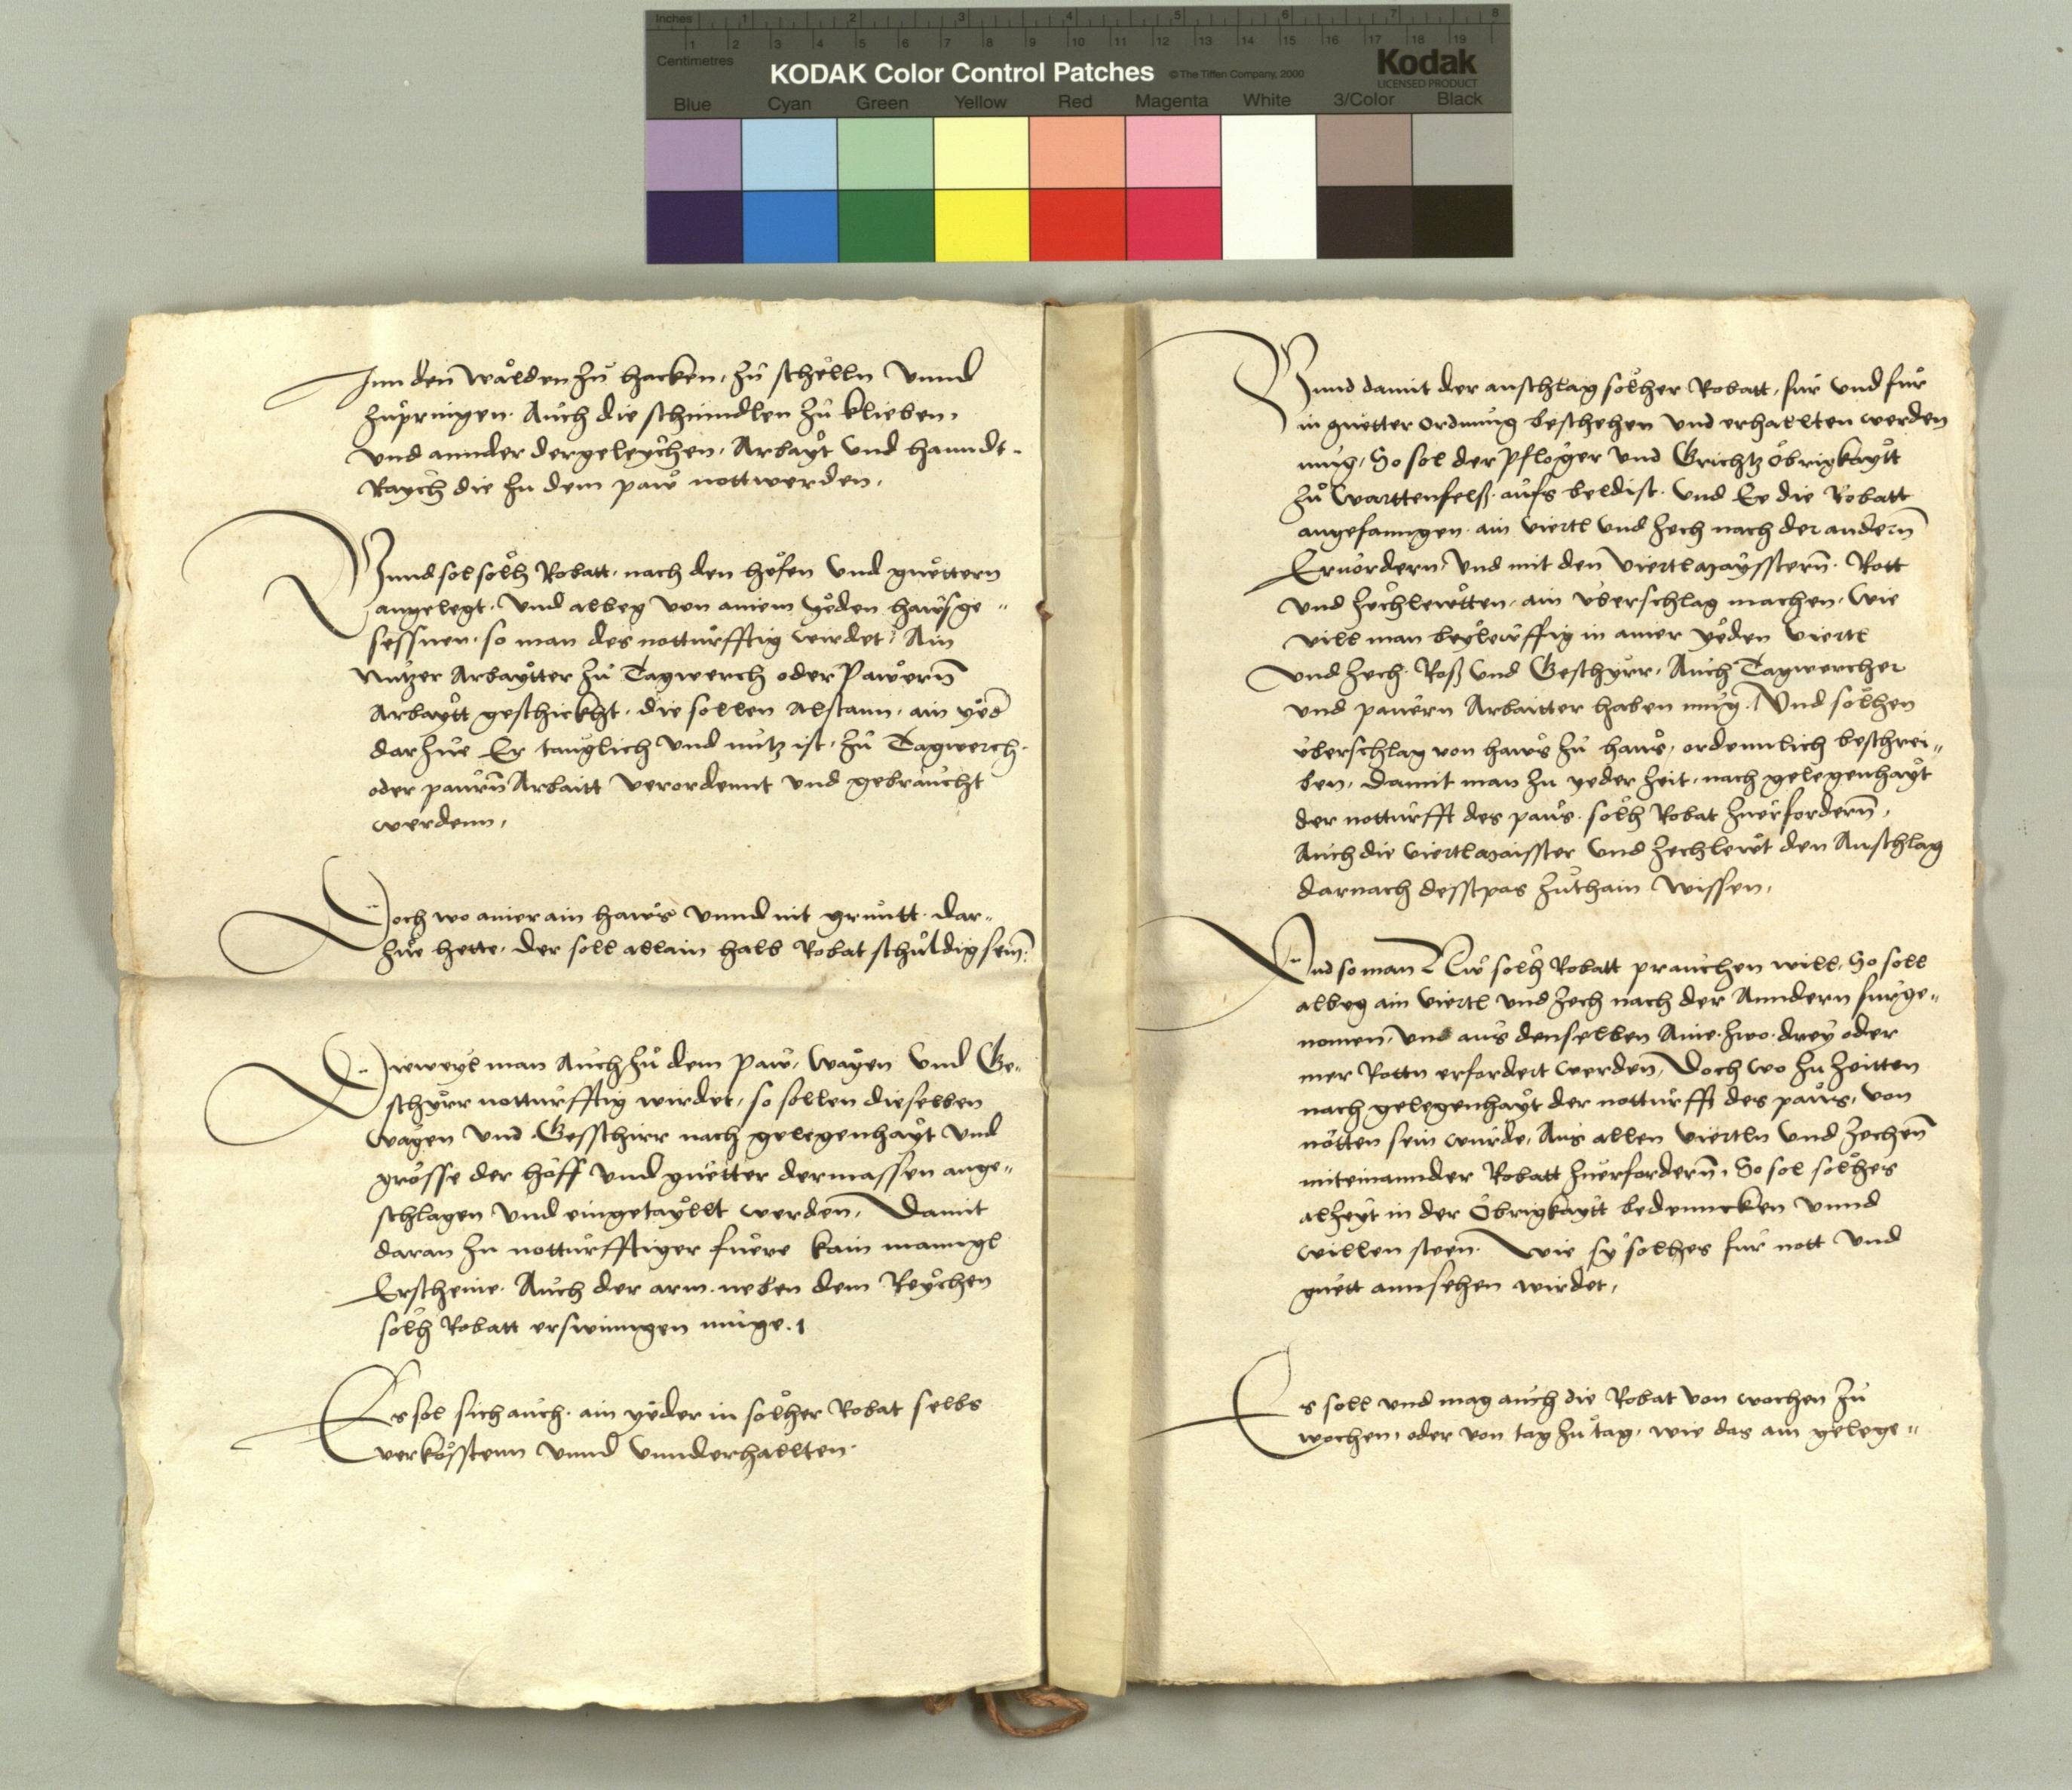 Inches 1 2 3 4 5 6 7 8
Centimetres 1 2 3 4 5 6 7 8 9 10 11 12 13 14 15 16 17 18 19
KODAK Color Control Patches © The Tiffen Company, 2000 Kodak
LICENSED PRODUCT
Blue Cyan Green Yellow Red Magenta White 3/Color Black
Inn den wälden zu hacken, zu schelln vnnd
zupringen. Auch die schinndlen zu klieben,
vnd annder dergeleychen, Arbayt vnd hanndt-
Raych die zu dem paw nottwerden,
Vnnd sol solh Robatt, nach den höfen vnd guettern
angelegt, vnd albeg von ainem yeden hawsge"
sessnen, so man des notturfftig wirdet, Ain
Nutzer Arbaytter zu Tagwerch oder Pawern
Arbaytt geschickht, die sollen alsdann, ain yed
darzue Er tauglich vnd nutz ist, zu Tagwerch.
oder paurn Arbaitt verordennt vnd gebraucht
werdenn,
Doch wo ainer ain haws vnnd nit gruntt dar"
zue hette, der soll allain halb Robat schuldig sein.
Dieweyl man Auch zu dem paw, wagen vnd Ge"
schyrr notturfftig wirdet, so sollen dieselben
wagen vnd Gesschirr nach gelegenhayt vnd
grösse der höff vnd guetter dermassen ange"
schlagen vnd eingetayllt werden, Damit
daran zu notturfftiger fuere kain manngl
Erscheine. Auch der arm neben dem Reychen
solh Robatt erswinngen muge.
Es sol sich auch ain yeder in solher Robat selbs
verkösstenn vnnd vnnderhallten.
Vnnd damit der anschlag solher Robatt, fur vnd fur
in guetter ordnung beschehen vnd erhallten werden
mug, So sol der Pfleger vnd Grichtz öbrigkaytt
zu Warttenfelß aufs beldist. vnd Ee die Robatt
angefanngen ain viertl vnd zech nach der andern
Eruordern, vnd mit den viertlmaysstern. Rott
vnd zechlewtten, ain vberschlag machen, wie
vill man beylewffig in ainer yeden viertl
vnd zech. Roß vnd Geschyrr, Auch Tagwercher
vnd pauern Arbaitter haben mug. Vnd solhen
vberschlag von haws zu haws, ordennlich beschrei"
ben, damit man zu yeder zeit, nach gelegenhayt
der notturfft des paws. solh Robat zuerfordern,
Auch die viertlmaisster vnd zechlewt den Anschlag
darnach desstpas zuthain wissen,
Vnd so man Nw solh Robatt prauchen will, So soll
albeg ain viertl vnd zech nach der Anndern furge"
nomen, vnd aus denselben Aine. zwo. drey oder
mer Rottn erfordert werden, Doch wo zu zeitten
nach gelegenhayt der notturfft des paws, von
nötten sein wurde, Aus allen viertln vnd zechen
miteinannder Robatt zuerfordern, So sol solhes
alzeyt in der Öbrigkaytt bedennckhen vnnd
willen steen. Wie sy solhes fur nott vnd
guett annsehen wirdet,
Es soll vnd mag auch die Robat von wochen zu
wochen, oder von tag zu tag, wie das am gelege"